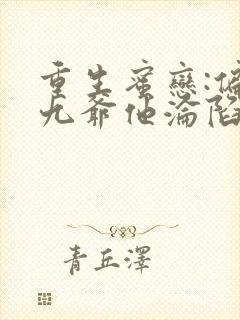 重生蜜戀:偏
九爺他淪陷
青丘澤